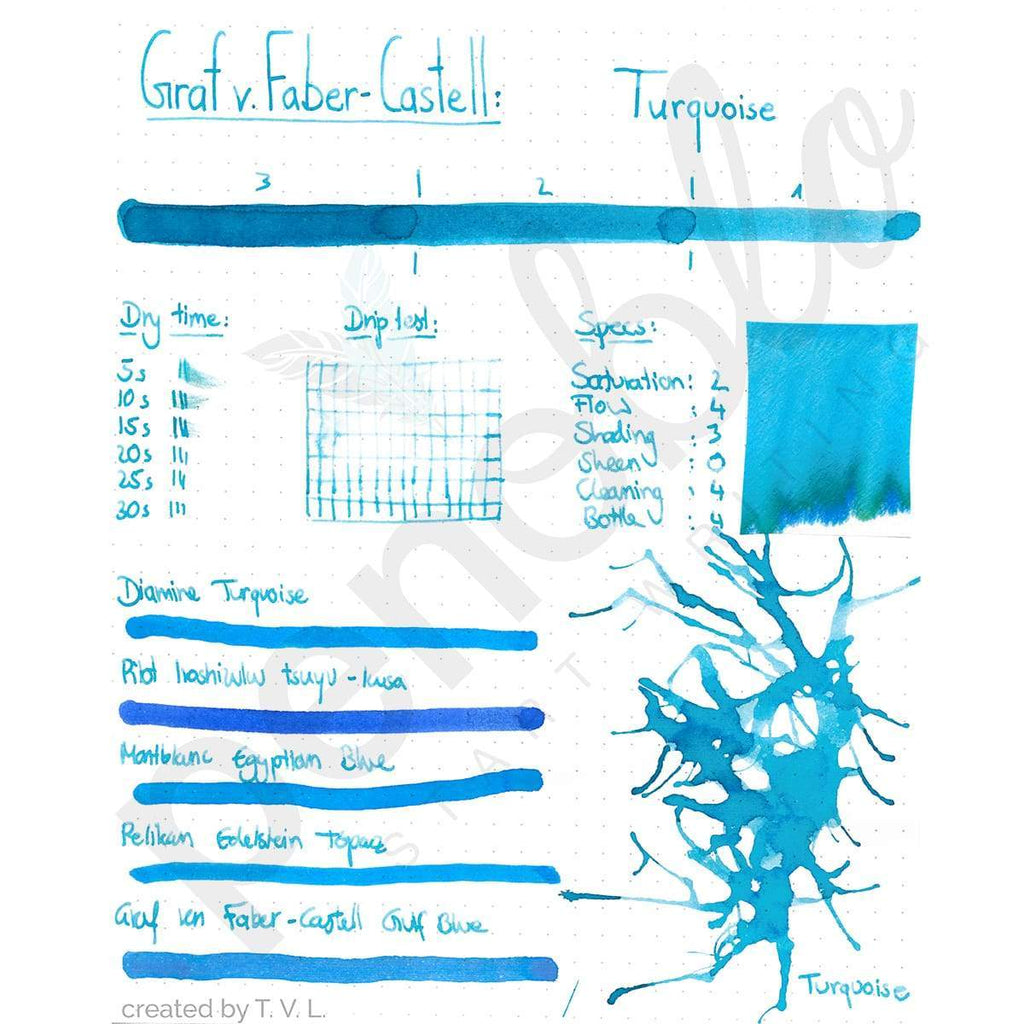 Graf v. Faber-Castell: Turquoise
3 2 1
Dry time:
5s
10s
15s
20s
25s
30s
Drip test:
Specs:
Saturation: 2
Flow : 4
Shading : 3
Sheen : 0
Cleaning : 4
Bottle : 4
Diamine Turquoise
tsuyu-kusa
Montblanc Egyptian Blue
Pelikan Edelstein Topaz
Graf von Faber-Castell Gulf Blue
Turquoise
created by T. V. L.
penoblo
START WRITING